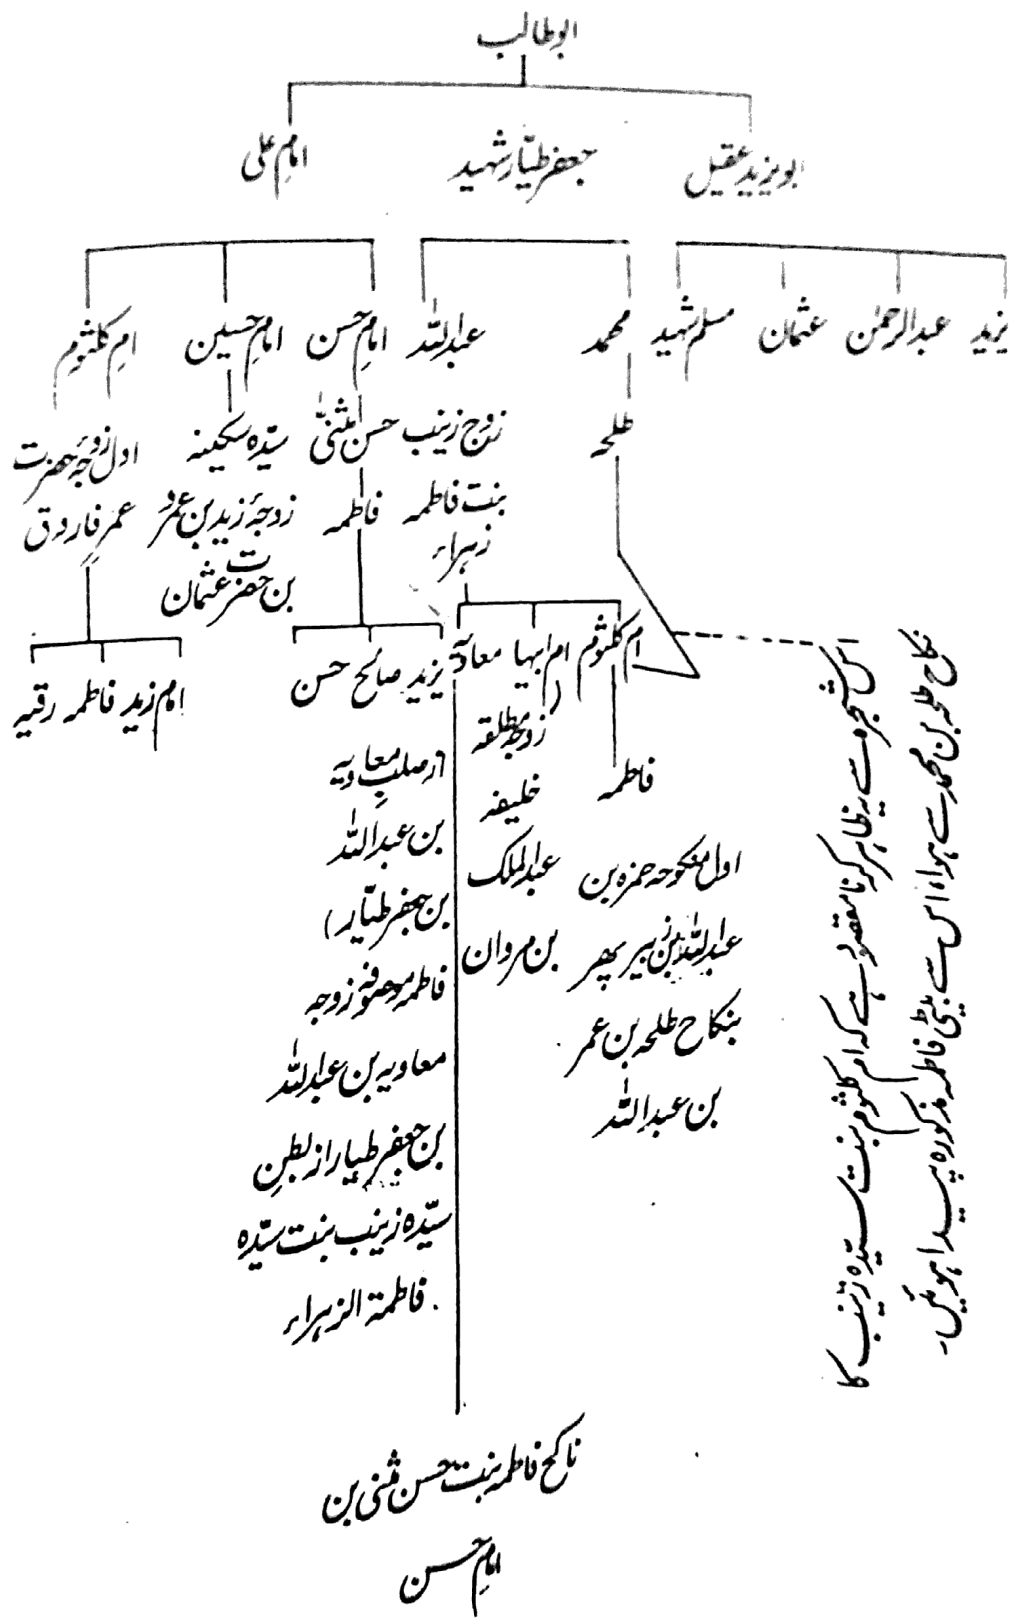 ابوطالب
ابویزید عقیل
جعفر طیّار شہید
امام علی
یزید
عبدالرحمٰن
عثمان
مسلم شہید
محمد
عبداللہ
امام حسن
امام حسین
ام کلثوم
طلحہ
زوج زینب
بنت فاطمہ
زہراء
حسن مثنیٰ
فاطمہ
سیّدہ سکینہ
زوجۂ زید بن عمرو
بن حضرت عثمان
اول زوجۂ حضرت
عمر فاروق
ام کلثوم
ام ابیہا
معاویہ
یزید
صالح
حسن
ام زید
فاطمہ
رقیہ
(زوجہ مطلقہ
خلیفہ
عبدالملک
بن مروان
فاطمہ
اول منکوحہ حمزہ بن
عبداللہ بن زبیر پھر
بنکاح طلحہ بن عمر
بن عبداللہ
از صلبِ معاویہ
بن عبداللہ
بن جعفر طیّار)
فاطمہ موصوفہ زوجہ
معاویہ بن عبداللہ
بن جعفر طیار از بطنِ
سیّدہ زینب بنت سیّدہ
فاطمۃ الزہراء
ناکح فاطمہ بنت حسن مثنی بن
امام حسن
اس شجرہ سے یہ ظاہر کرنا مقصود ہے کہ ام کلثوم بنت سیّدہ زینب کا
نکاح طلحہ بن محمد سے ہوا، اس سے بیٹی فاطمہ مذکورہ پیدا ہوئیں۔